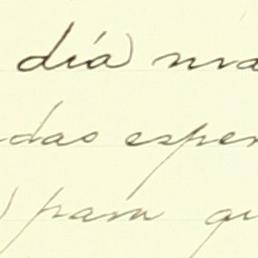 día
das esper
para qu